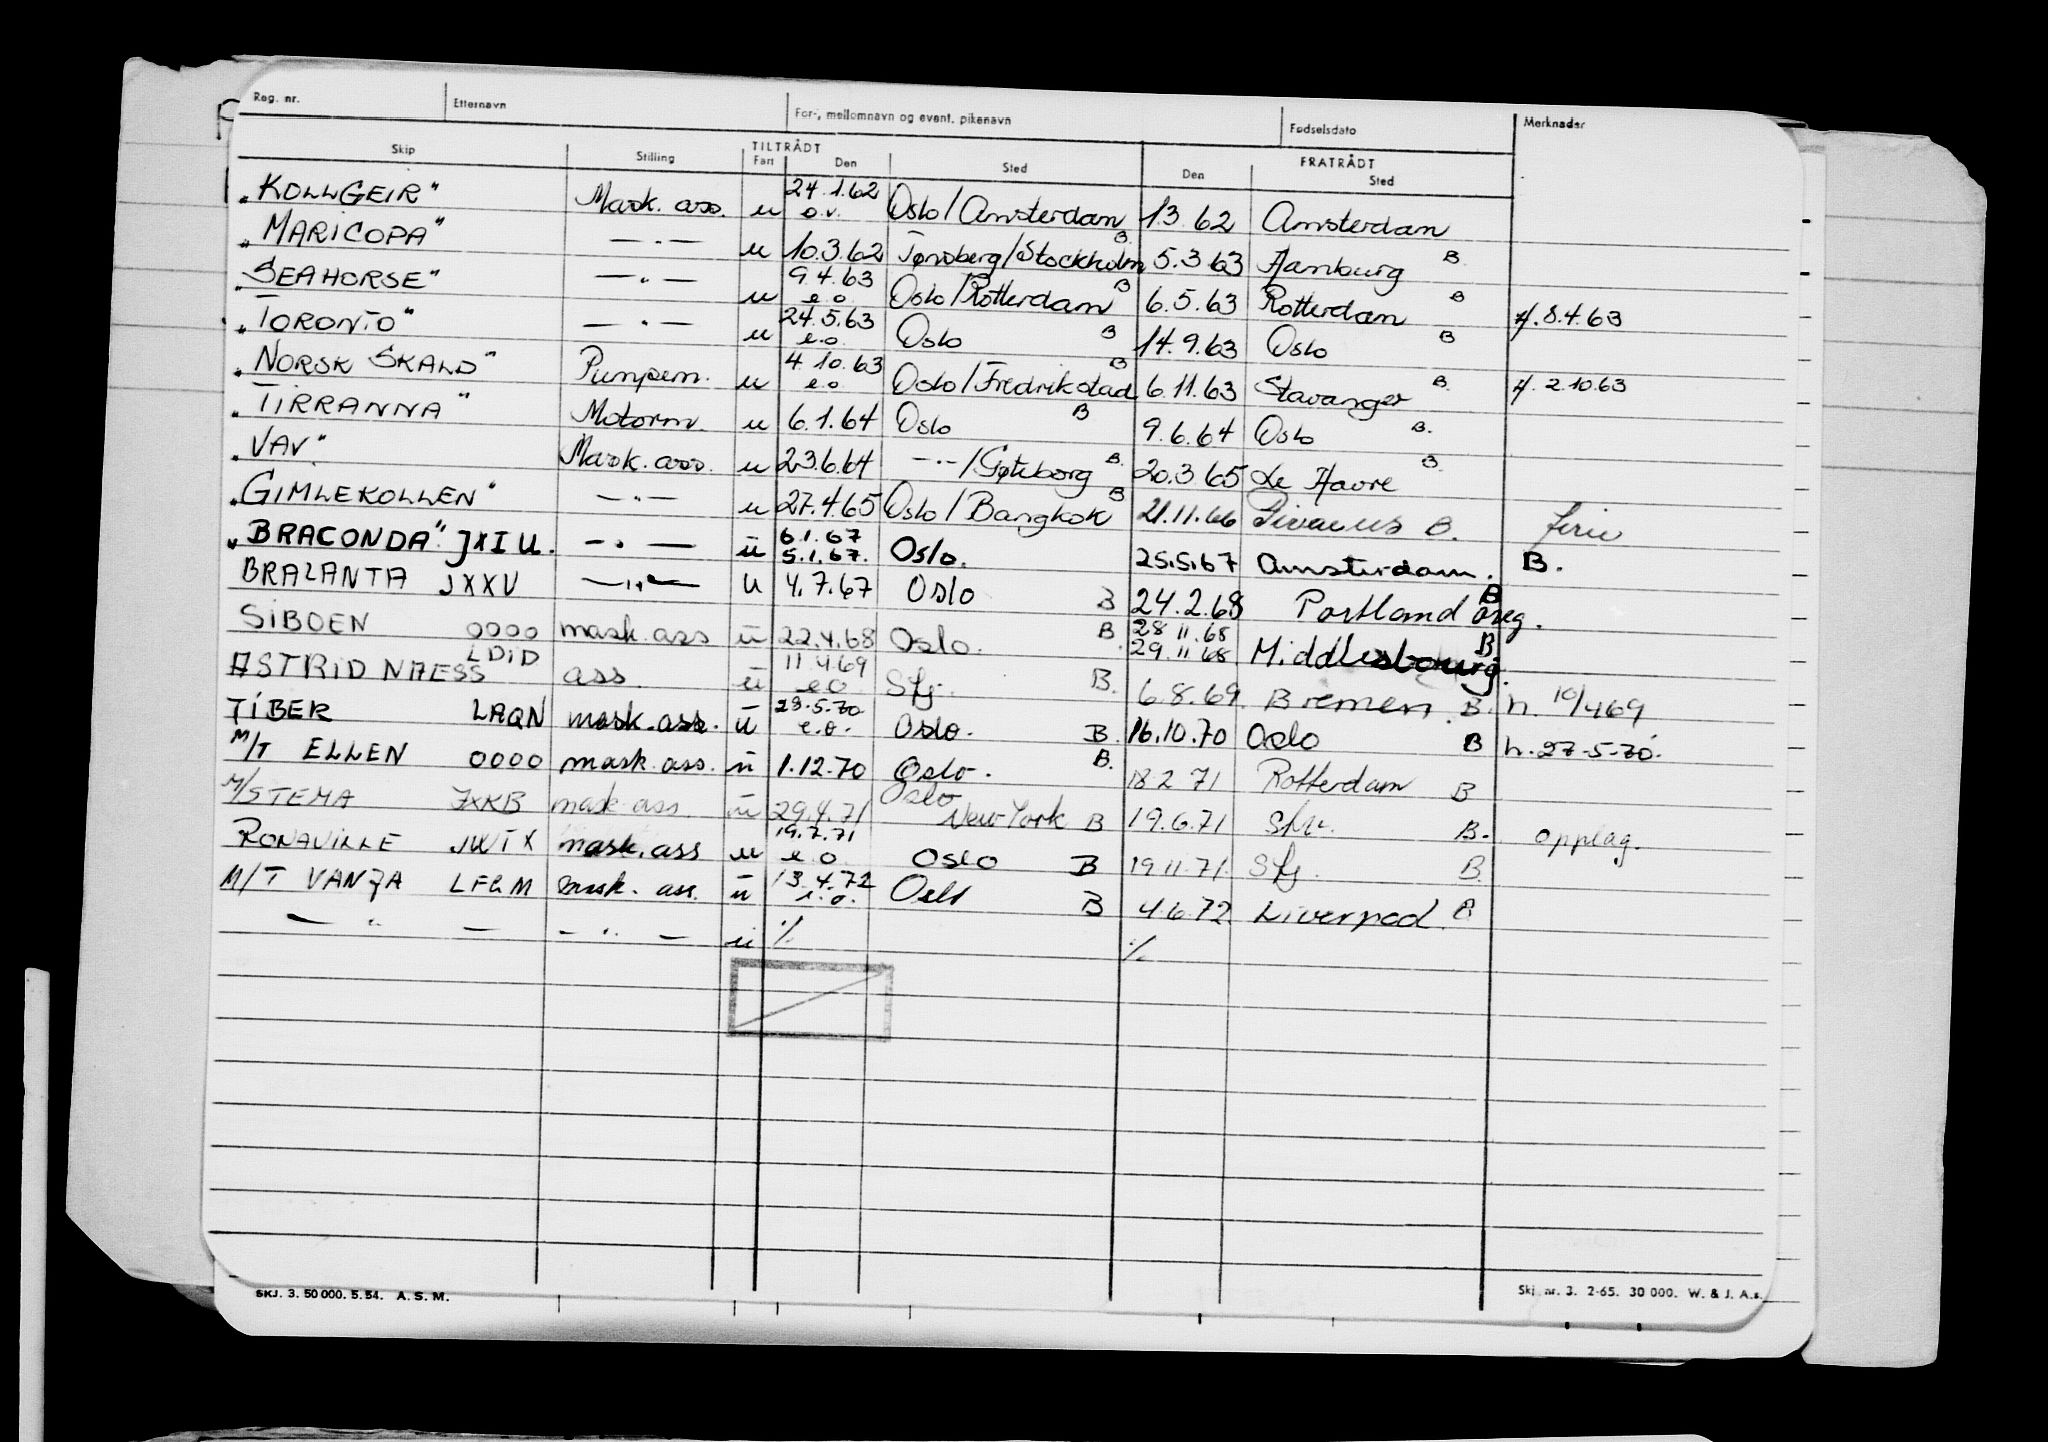 Reg. nr. Etternavn For-, mellomnavn og event. pikenavn Fødselsdato Merknader
Skip Stilling TILTRÅDT Fart Den Sted FRATRÅDT Den Sted
"KOLLGEIR" Mask. ass. u 24.1.62 o.v. Oslo/Amsterdam 1.3.62 Amsterdam
"MARICOPA" —.— u 10.3.62 Tønsberg/Stockholm B. 5.3.63 Hamburg B.
"SEAHORSE" —.— u 9.4.63 e.o. Oslo/Rotterdam B 6.5.63 Rotterdam B 8.4.63
"TORONTO" —.— u 24.5.63 e.o. Oslo B 14.9.63 Oslo B
"NORSK SKALD" Pumpem. u 4.10.63 e.o. Oslo/Fredrikstad B 6.11.63 Stavanger B. 2.10.63
"TIRRANNA" Motorm. u 6.1.64 Oslo B 9.6.64 Oslo B.
"VAV" Mask. ass. u 23.6.64 —.—/Gøteborg B. 20.3.65 Le Havre B.
"GIMLEKOLLEN" —.— u 27.4.65 Oslo/Bangkok B 21.11.66 Piraeus B. ferie
"BRACONDA" JXIU. —.— ū 6.1.67 5.1.67. Oslo. 25.5.67 Amsterdam. B.
BRALANTA JXXV —"— u 4.7.67 Oslo B 24.2.68 Portland oreg. B
SIBOEN 0000 mask. ass ū 22.4.68 Oslo. B 28 11.68 29.11 68 Middlesbourg. B
ASTRID NAESS LDID ass. ū 11.4.69 e.o Sfj. B. 6.8.69. Bremen. B. h. 10/4 69
TIBER LAQN mask. ass. ū 28.5.70 e.o. Oslo. B. 16.10.70 Oslo B h. 27-5-70.
M/T ELLEN 0000 mask. ass. ū 1.12.70 Oslo. B. 18.2.71 Rotterdam B
M/STEMA JXKB mask. ass. ū 29.4.71 Oslo New York B 19.6.71 B. opplag.
RONAVILLE JWTX mask. ass u 19.7.71 e.o Oslo B 19.11.71. Sfj. B.
M/T VANJA LFGM mask. ass. ū 13.4.72 e.o. Oslo B 4.6.72 Liverpool. B
— " — — " — u ./. ./.
SKJ. 3. 50 000. 5. 54. A. S. M. Skj. nr. 3. 2-65. 30 000. W. & J. A.s.